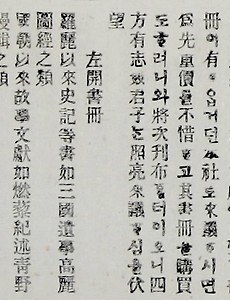 冊이有ᄒᆞ옵거던本社로來議ᄒᆞ시면
爲先重價를不惜ᄒᆞ고其書冊을購買
도ᄒᆞ려니와將次刊布도ᄒᆞ터이오니四
方有志ᄒᆞ신君子ᄂᆞᆫ照亮來議ᄒᆞ심을伏
望
左開書冊
羅麗以來史記等書如三國遺事高麗
圖經之類
國朝以來故事文獻如燃藜紀述靑野
謾輯之類